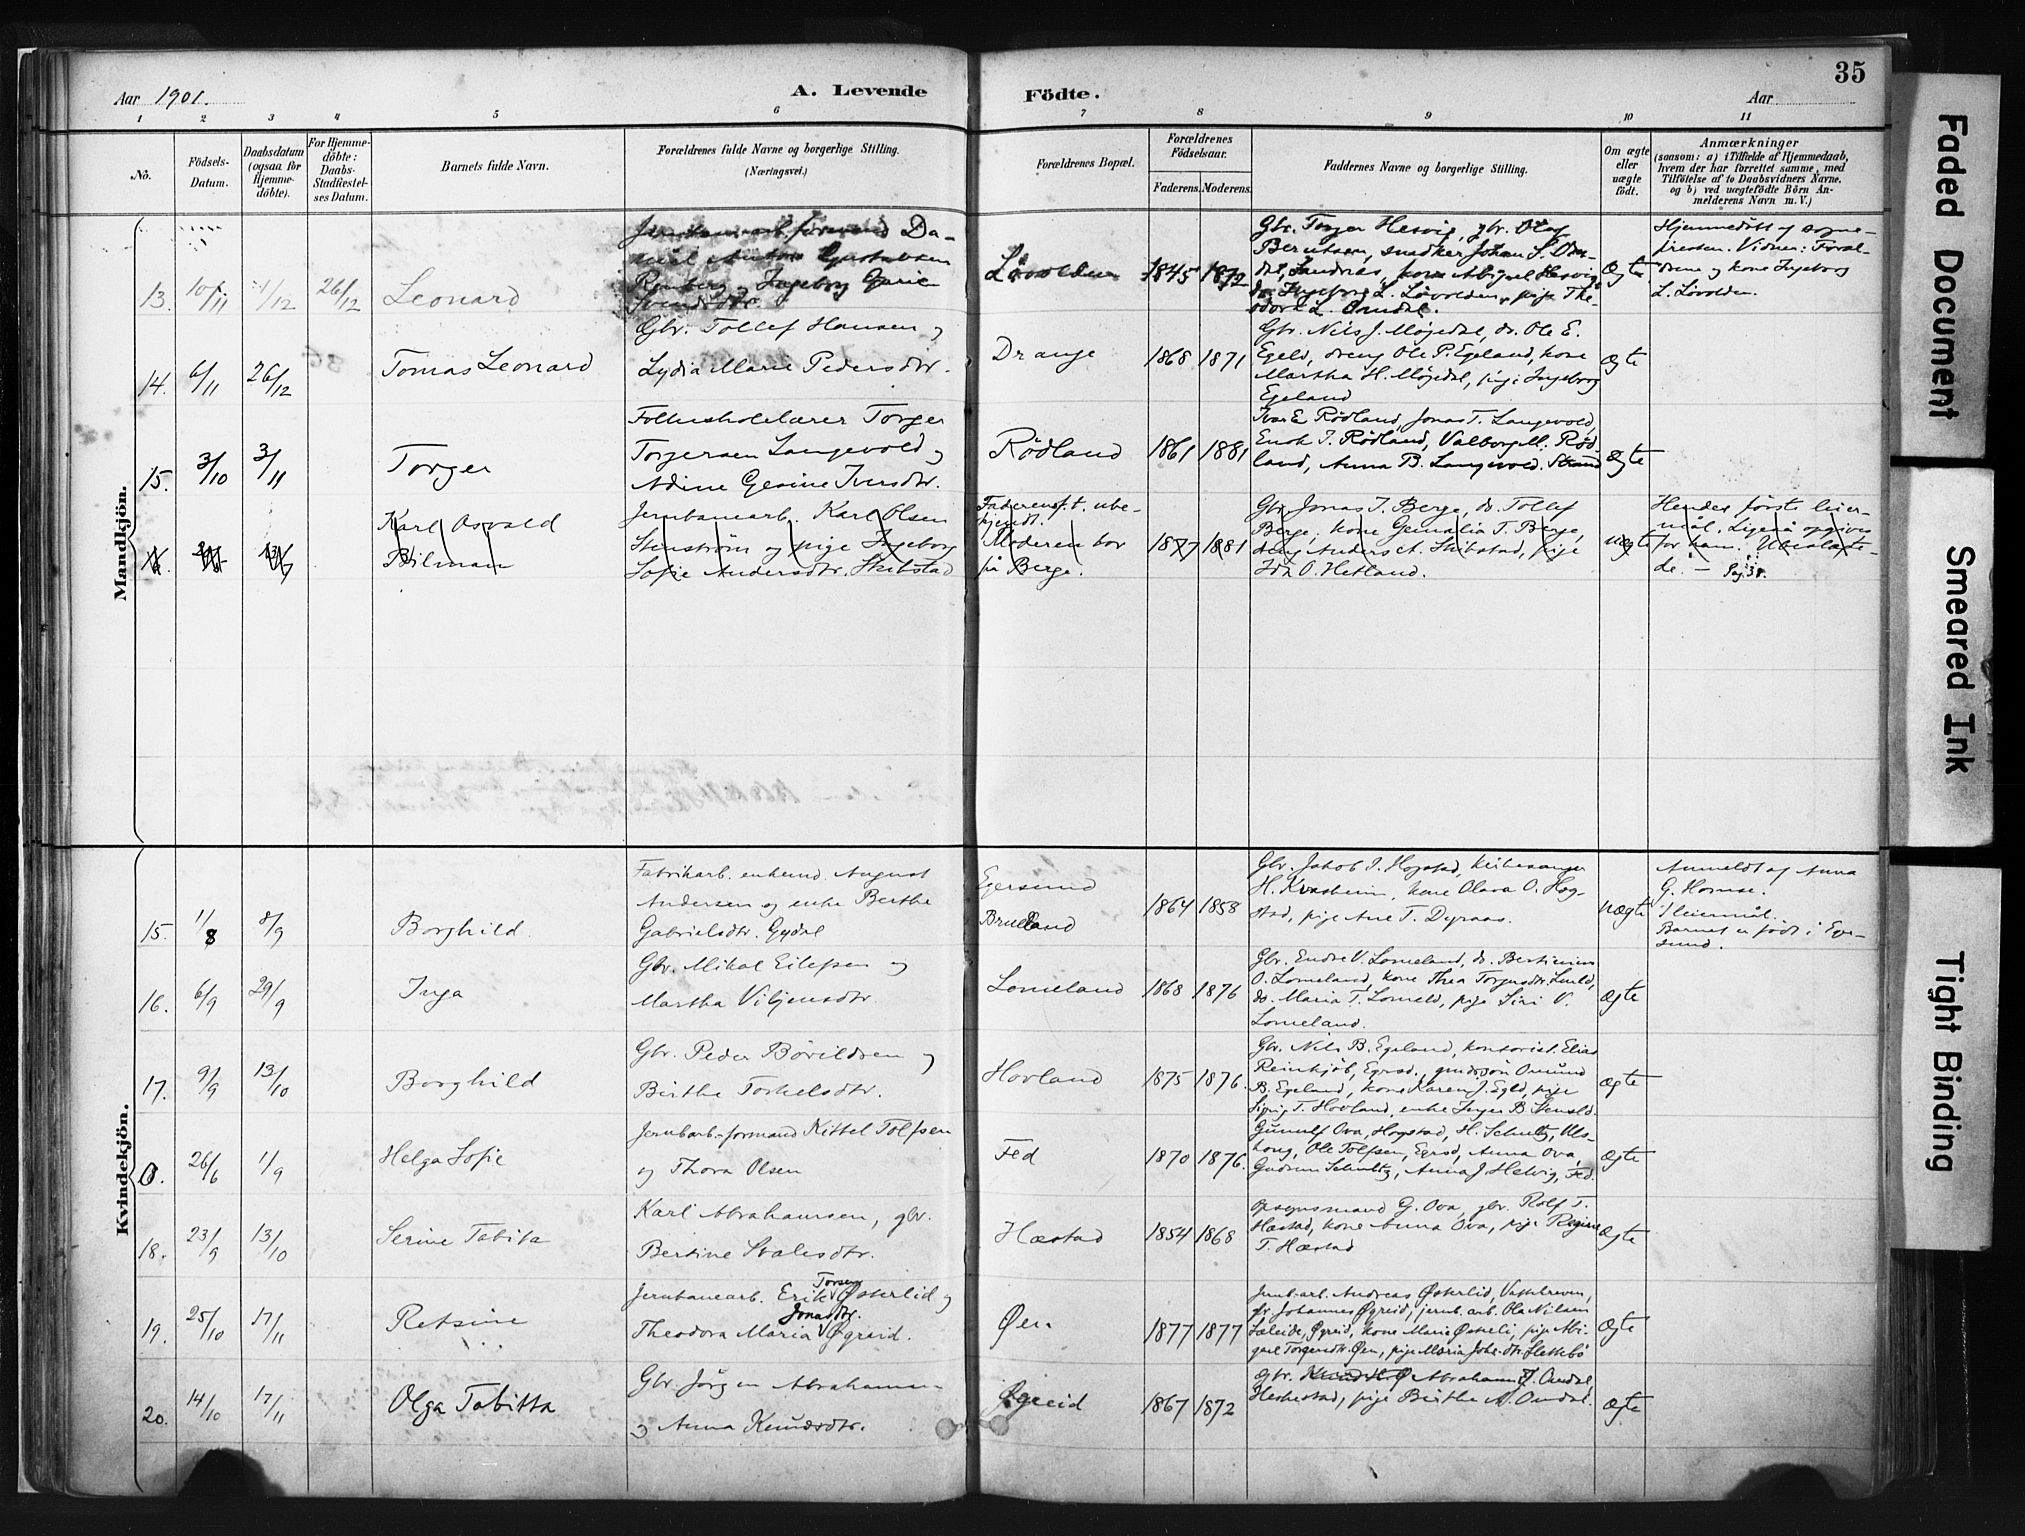 35
Aar 1901.
A. Levende
Födte.
Aar
1 2 3 4 5 6 7 8 9 10 11
No.
Födsels-
Datum.
Daabsdatum
(ogsaa for
Hjemme-
döbte).
For Hjemme-
döbte:
Daabs-
Stadfæstel-
ses Datum.
Barnets fulde Navn.
Forældrenes fulde Navne og borgerlige Stilling.
(Næringsvei.)
Forældrenes Bopæl.
Forældrenes
Födselsaar.
Faderens. Moderens.
Faddernes Navne og borgerlige Stilling.
Om ægte
eller
uægte
födt.
Anmærkninger
(saasom: a) i Tilfælde af Hjemmedaab,
hvem der har forrettet samme, med
Tilföielse af to Daabsvidners Navne,
og b) ved uægtefödte Börn An-
melderens Navn m. V.)
Mandkjön.
13. 10/11 1/12 26/12
Leonard
Da-
Ingeborg
Løvolden
1845 1872
Gbr. Torger Hesvig, gbr. Olaf
Berentsen, snedker Johan S. Om-
dal, Sandnæs, kone Abigael Hesvig,
do. Ingeborg L. Løvolden, pige The-
odora L. Omdal.
Ægte
Hjemmedøbt af sogne-
presten. Vidner: Foræl-
drene og kone Ingeborg
L. Løvolden.
14. 6/11 26/12
Tomas Leonard
Gbr. Tollef Hansen og
Lydia Marie Pedersdtr.
Drange
1868 1871
Gbr. Nils J. Møjedal, do. Ole E.
Egeld, dreng Ole P. Egeland, kone
Martha H. Møjedal, pige Ingeborg
Egeland
Ægte
15. 3/10 3/11
Torger
Folkeskolelærer Torger
Torgersen Langevold og
Adine Gesine Iversdtr.
Rødland
1861 1881
Ivar E. Rødland, Jonas T. Langevold,
Enok I. Rødland, Valborg M. Rød-
land, Anna B. Langevold. Strand
Ægte
Karl Osvald
Hilman
Jernbanearb. Karl Olsen
Stenstrøm og pige Ingeborg
Sofie Andersdtr. Skibstad
Faderens f. t. ube-
kjendt.
Moderen bor
på Berge.
1877 1881
Gbr. Jonas T. Berge, do. Tollef
Berge, kone T. Berge,
dreng Anders A. Skibstad, pige
Ida O. Hetland.
uægte
Hendes første leier-
mål. Ligeså opgives
for ham.
Pag. 38.
Kvindekjön.
15. 1/8 8/9
Borghild.
Fabrikarb. enkemd. August
Andersen og enke Berthe
Gabrielsdtr. Gydal
Egersund
Brueland
1864 1858
Gbr. Jakob I. Hogstad, kirkesanger
H. Kvasheim, kone Olava O. Hog-
stad, pige Ane T. Dyraas.
uægte
Anmeldt af Anna
G. Hornse.
1 leiermål.
Barnet er født i Eger-
sund.
16. 6/9 29/9
Inga
Gbr. Mikal Eilefsen og
Martha Viljensdtr.
Lomeland
1868 1876
Gbr. Endre V. Lomeland, do. Bertinius
O. Lomeland, kone Thea Torgersdtr. Lmld,
do. Maria T. Lomeld, pige Siri V.
Lomeland.
Ægte
17. 9/9 13/10
Borghild
Gbr. Peder Børildsen og
Birthe Torkelsdtr.
Hovland
1875 1876.
Gbr. Nils B. Egeland, kontorist. Elias
Reinkjøb, Egrsd., grdssøn Omund
B. Egeland, kone Karen J. Egld, pige
Sigrig T. Hovland, enke Inger B.
Ægte
26/6 1/9
Helga Sofie
Jernbarb.-formand Kittel Tolfsen
og Thora Olsen
Fed
1870 1876.
Gunulf Ova, Hogstad, H. Schultz, Uls-
Ole Tolfsen, Egrsd, Anna Ova,
Gudrun Schultz, Anna J. Helvig, Fed.
Ægte
18. 23/9 13/10
Serine Tabita
Karl Abrahamsen, gbr.
Bertine Svalesdtr.
Hæstad
1854 1868
Opsynsmand G. Ova, gbr. Rolf T.
Hæstad, kone Anna Ova, pige Regine
T. Hæstad
Ægte
19. 25/10 17/11
Retsine
Jernbanearb. Erik Torsen Østerlid og
Theodora Maria Jonasdtr. Øgreid.
Øen
1877 1877
Jernb. arb. Andreas Østerlid,
gbr. Johannes Øgreid, jernb. arb. Ola Nilsen
Øgreid, kone Marie Østerli, pige Abi-
gael Torgersdtr. Øen, pige Maria Johs. dtr. Slettebø
Ægte
20. 14/10 17/11
Olga Tabitta
Gbr. Jörgen Abrahams-
og Anna Knudsdtr.
Øgreid
1867 1872
Gbr. Abraham J. Omdal
Heskestad, pige Birthe A. Omdal.
Ægte
Faded Document
Smeared Ink
Tight Binding